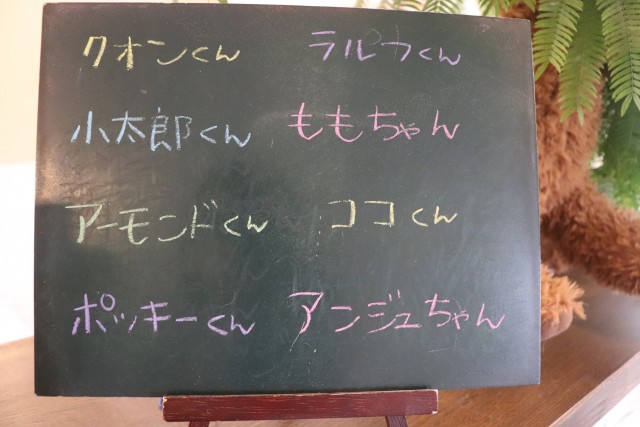 クオンくん ラルフくん
小太郎くん ももちゃん
アーモンドくん ココくん
ポッキーくん アンジュちゃん